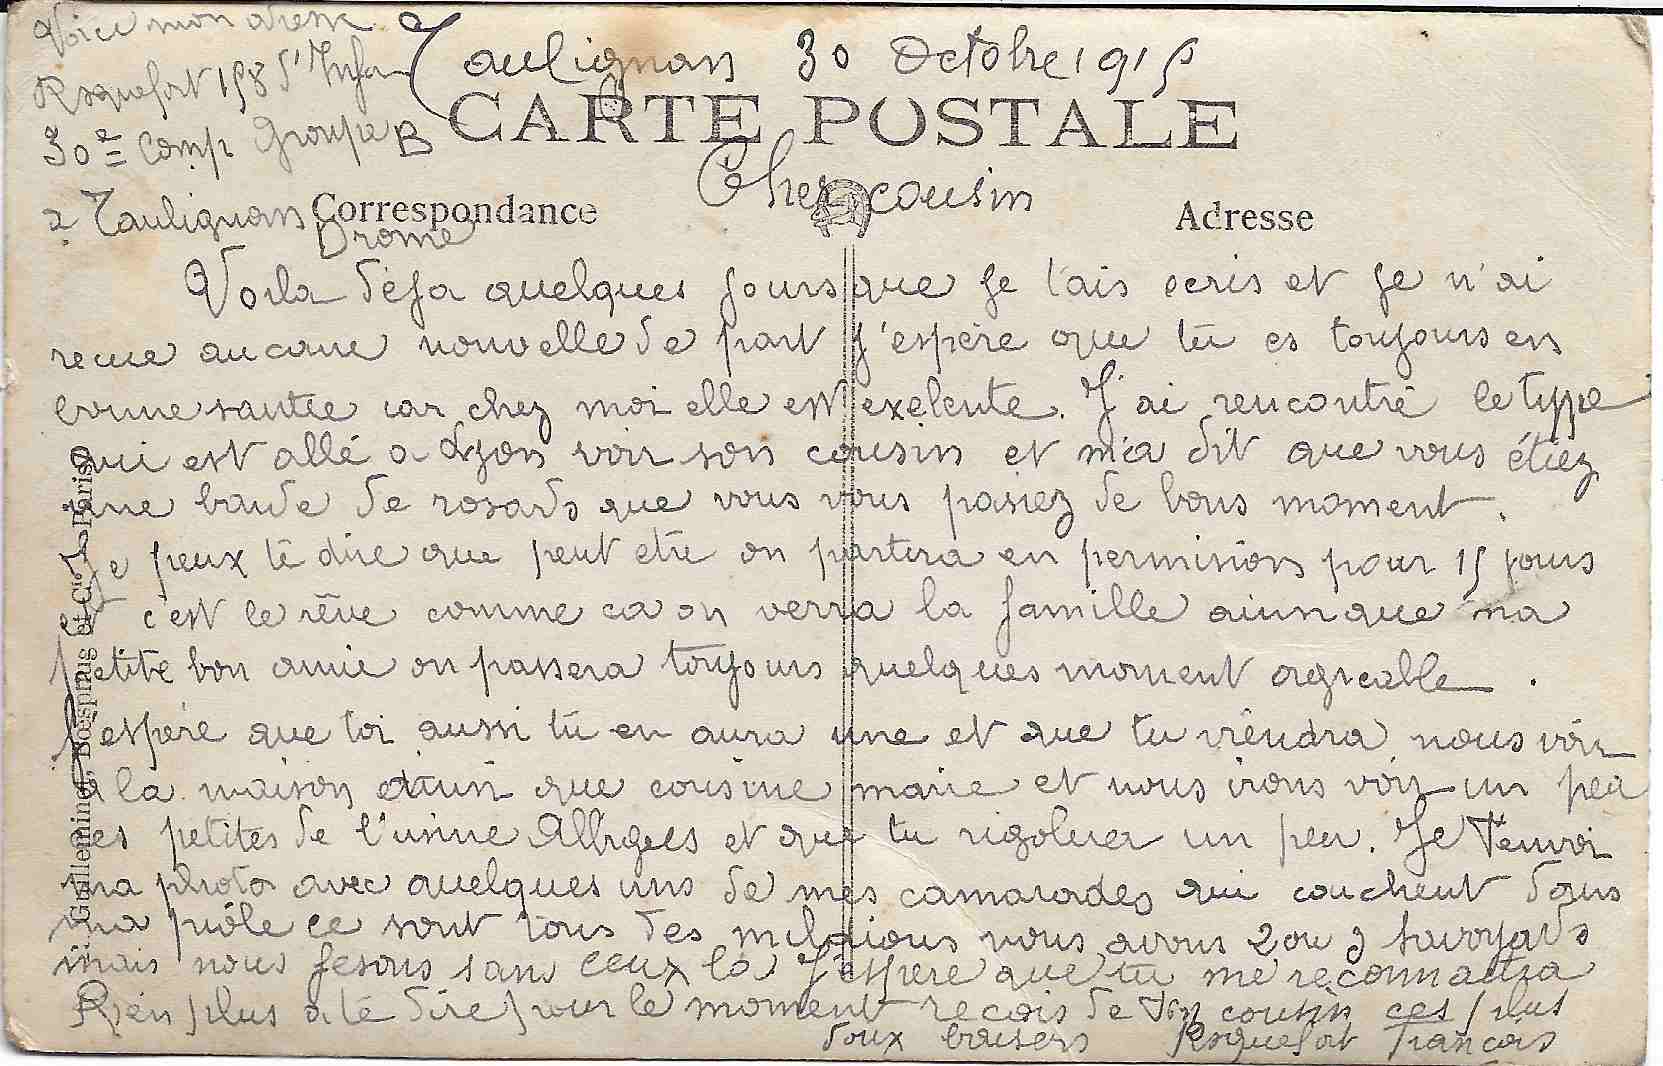 Voici mon adresse
Roquefort 158 d'Infa
30e Comp Groupe B
a Taulignan
Drome
Taulignan 30 Octobre 1915
CARTE POSTALE
Cher cousin
Correspondance
Adresse
Voila deja quelques jours que je t'ais ecris et je n'ai
recue aucune nouvelle de part j'espère que tu es toujours en
bonne santée car chez moi elle est exelente. J'ai rencontré le type
qui est allé a Lyon voir son cousin et m'a dit que vous étiez
une bande de rosards que vous vous pasiez de bons moment.
Je peux te dire que peut etre on partira en permision pour 15 jours
et c'est le rêve comme ca on verra la famille ainsi que ma
petite bon amie on passera toujours quelques moment agreable.
J'espére que toi aussi tu en aura une et que tu viendra nous voir
a la maison ainsi que cousine marie et nous irons voir un peu
les petites de l'usine et que tu rigoluer un peu. Je t'envoi
ma photo avec quelques uns de mes camarades qui couchent dans
ma piôle ce sont tous des nous avons 2 ou 3 savoyards
mais nous fesons sans ceux la J'espere que tu me reconnaitra
Rien plus a te dire pour le moment recois de ton cousin ces plus
doux baisers Roquefort Francois
Guilleminot, Bœspflug et Cie Paris